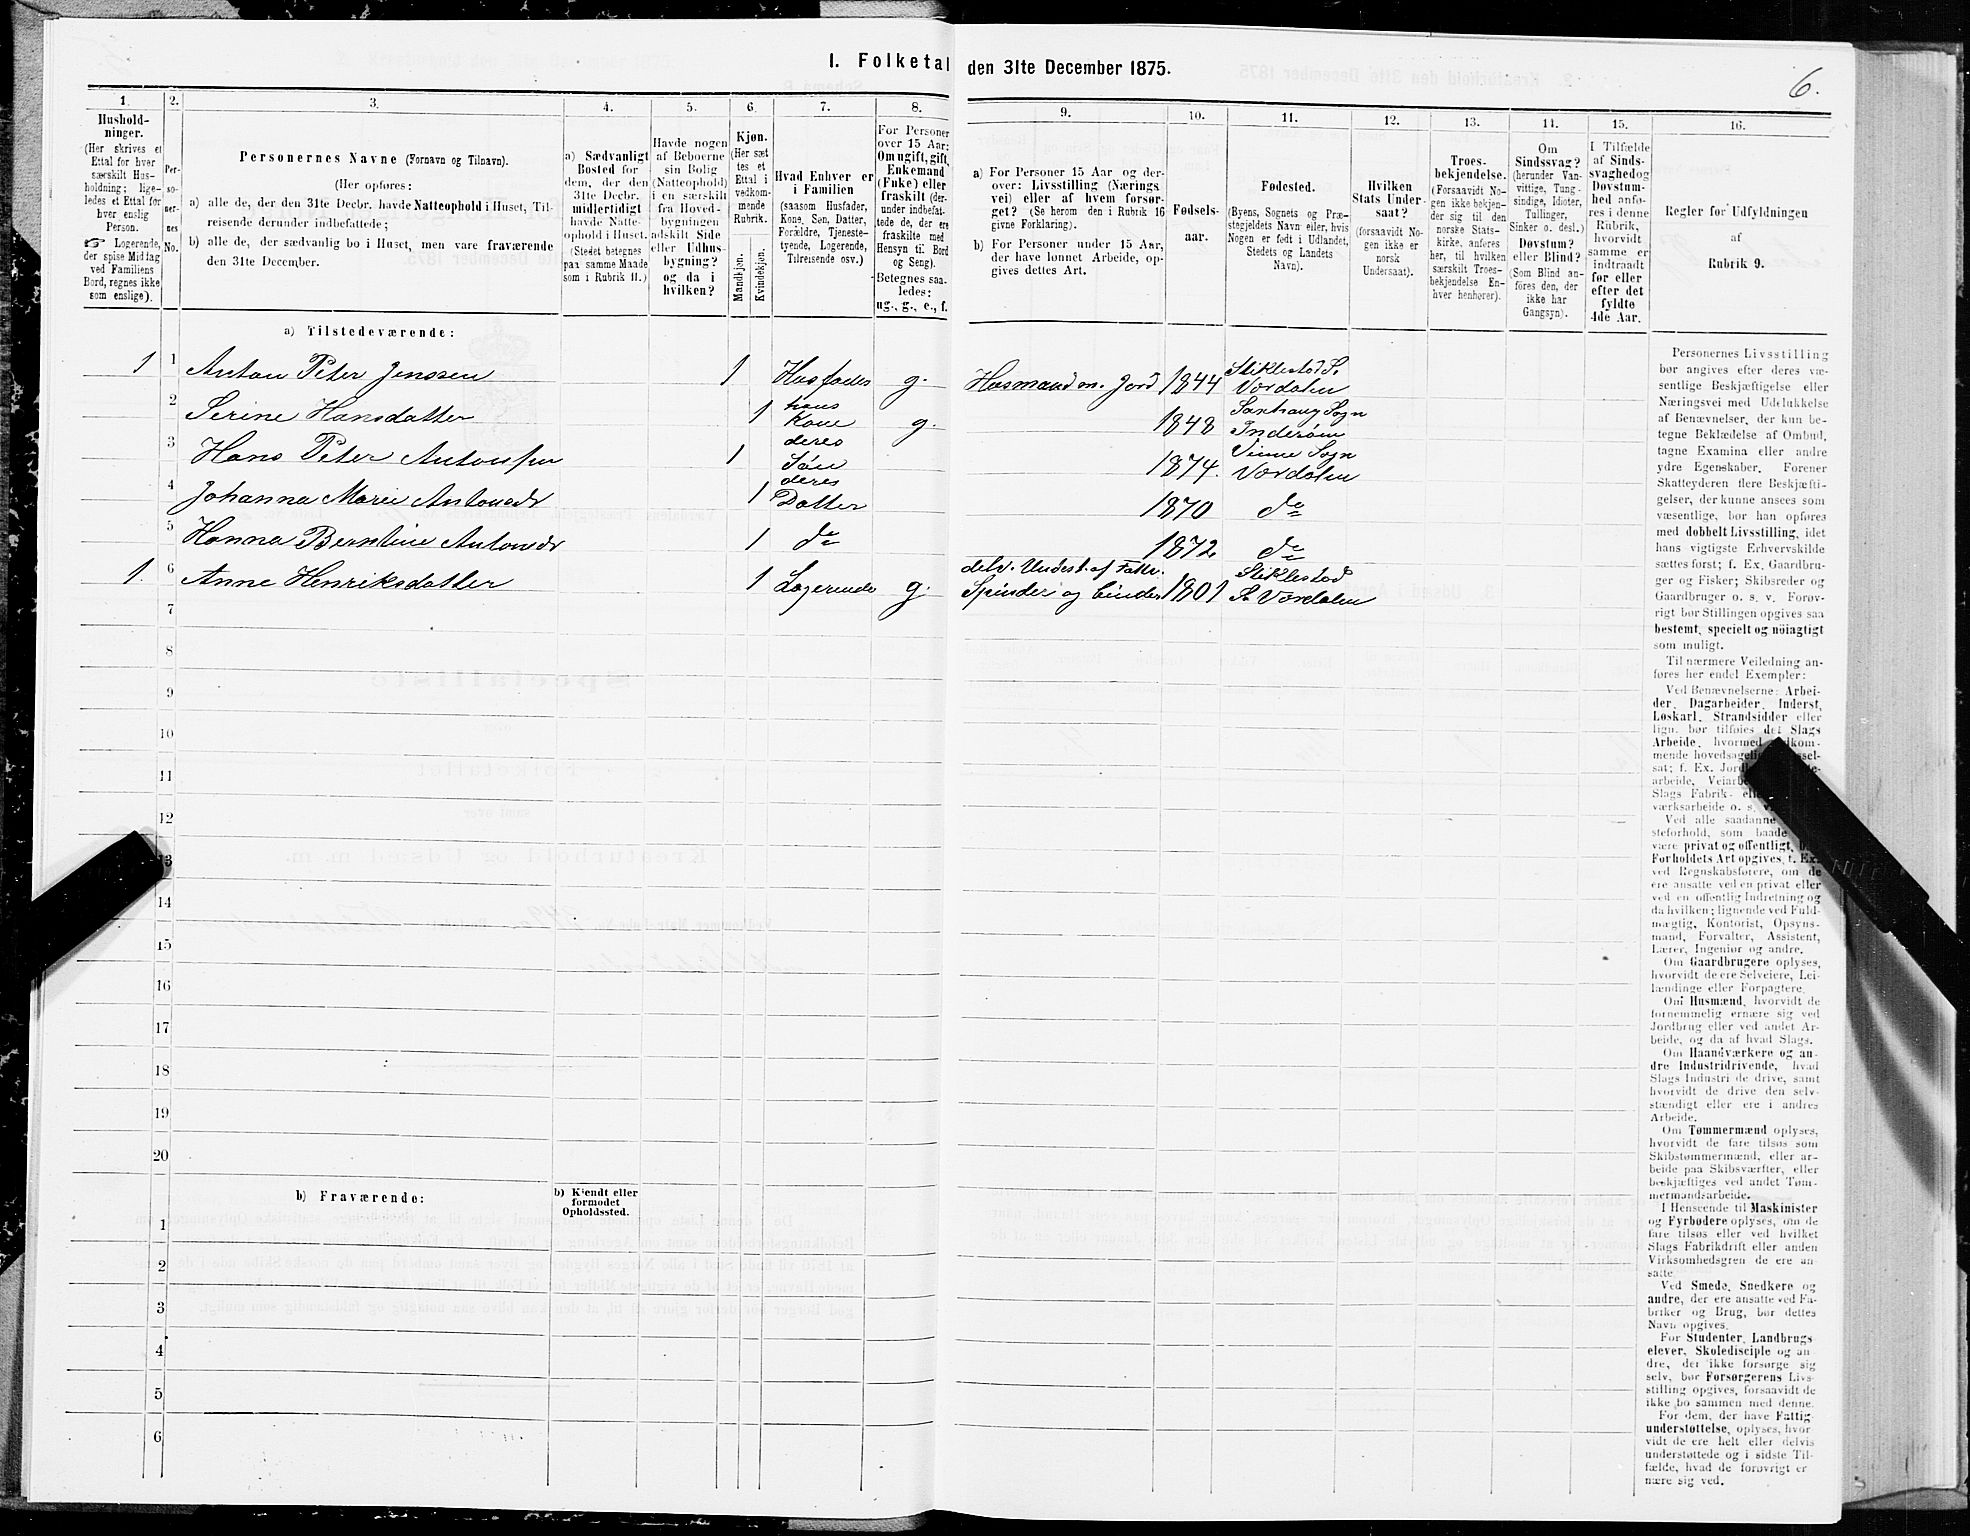 I. Folketal den 31te December 1875.
6.
1.
Hushold-
ninger.
(Her skrives et
Ettal for hver
særskilt Hus-
holdning; lige-
ledes et Ettal for
hver enslig
Person.
Logerende,
der spise Middag
ved Familiens
Bord, regnes ikke
som enslige).
2.
Per-
so-
ner-
nes
No.
3.
Personernes Navne (Fornavn og Tilnavn).
(Her opføres:
a) alle de, der den 31te Decbr. havde Natteophold i Huset, Til-
reisende derunder indbefattede;
b) alle de, der sædvanlig bo i Huset, men vare fraværende
den 31te December.
4.
a) Sædvanligt
Bosted for
dem, der den
31te Decbr.
midlertidigt
havde Natte-
ophold i Huset.
(Stedet betegnes
paa samme Maade
som i Rubrik 11.)
5.
Havde nogen
af Beboerne
sin Bolig
(Natteophold)
i en særskilt
fra Hoved-
bygningen
adskilt Side
eller Udhus-
bygning?
og da i
hvilken?
6.
Kjøn.
(Her sæt
tes et
Ettal i
vedkom-
mende
Rubrik.
Mandkjøn.
Kvindekjøn.
7.
Hvad Enhver er
i Familien
(saasom Husfader,
Kone, Søn, Datter,
Forældre, Tjeneste-
tyende, Logerende,
Tilreisende osv.)
8.
For Personer
over 15 Aar:
Om ugift, gift,
Enkemand
(Enke) eller
fraskilt (der-
under indbefat-
tede de, der ere
fraskilte med
Hensyn til Bord
og Seng).
Betegnes saa-
ledes:
ug., g., e., f.
9.
a) For Personer 15 Aar og der-
over: Livsstilling (Nærings
vei) eller af hvem forsør-
get? (Se herom den i Rubrik 16
givne Forklaring).
b) For Personer under 15 Aar,
der have lønnet Arbeide, op-
gives dettes Art.
10.
Fødsels-
aar.
11.
Fødested.
(Byens, Sognets og Præ-
stegjeldets Navn eller, hvis
Nogen er født i Udlandet,
Stedets og Landets
Navn).
12.
Hvilken
Stats Under-
saat?
(forsaavidt No-
gen ikke er
norsk
Undersaat).
13.
Troes-
bekjendelse.
(Forsaavidt No-
gen ikke bekjen-
der sig til den
norske Stats-
kirke, anføres
her, til hvilken
særskilt Troes-
bekjendelse En-
hver henhører).
14.
Om
Sindssvag?
(herunder Van-
vittige, Tung-
sindige, Idioter,
Tullinger,
Sinker o. desl.)
Døvstum?
eller Blind?
(Som Blind an-
føres den, der
ikke har
Gangsyn).
15.
I Tilfælde
af Sinds-
svaghed og
Døvstum-
hed anfø-
res i denne
Rubrik,
hvorvidt
samme er
indtraadt
før eller
efter det
fyldte
4de Aar.
16.
Regler for Udfyldningen
af
Rubrik 9.
a) Tilstedeværende:
1 1 Anton Peter Jenssen 1 Husfader g. Husmand m. Jord 1844 Stiklestad S. Værdalen
2 Serine Hansdatter 1 hans Kone g. 1848 Sakshaug Sogn Inderøen
3 Hans Peter Antonsen 1 deres Søn 1874. Vinne Sogn Værdalen
4 Johanna Marie Antonsdr 1 deres Datter 1870 do
5 Hanna Berntine Antonsdr 1 do 1872 do
1. 6 Anne Henriksdatter 1 Logerende g. delv. Underst. af Fattv. Spinder og binder 1801 Stiklestad S. Værdalen
7
8
9
10
11
12
13
14
15
16
17
18
19
20
b) Fraværende:
b) Kjendt eller
formodet
Opholdssted.
1
2
3
4
5
6
Personernes Livsstilling
bør angives efter deres væ-
sentlige Beskjæftigelse eller
Næringsvei med Udelukkelse
af Benævnelser, der kun be-
tegne Beklædelse af Ombud,
tagne Examina eller andre
ydre Egenskaber. Forener
Skatteyderen flere Beskjæfti-
gelser, der kunne ansees som
væsentlige, bør han opføres
med dobbelt Livsstilling, idet
hans vigtigste Erhvervskilde
sættes først; f. Ex. Gaardbru-
ger og Fisker; Skibsreder og
Gaardbruger o. s. v. Forøv-
rigt bør Stillingen opgives saa
bestemt, specielt og nöiagtigt
som muligt.
Til nærmere Veiledning an-
føres her endel Exempler:
Ved Benævnelserne: Arbei-
der, Dagarbeider, Inderst,
Løskarl, Strandsidder eller
lign. bør tilføies det Slags
Arbeide, hvormed
mende hovedsagelig
sat; f. Ex.
arbeide,
Slags Fabrik-
værksarbeide o. s.
Ved alle saadanne
steforhold, som baade
være privat og offentligt,
Forholdets Art opgives, f. Ex.
ved Regnskabsførere, om de
ere ansatte ved en privat eller
ved en offentlig Indretning og
da hvilken; lignende ved Fuld-
mægtig, Kontorist, Opsyns-
mand, Forvalter, Assistent,
Lærer, Ingeniør og andre.
Om Gaardbrugere oplyses,
hvorvidt de ere Selveiere, Lei-
lændinge eller Forpagtere.
Om Husmænd, hvorvidt de
fornemmelig ernære sig ved
Jordbrug eller ved andet Ar-
beide, og da af hvad Slags.
Om Haandværkere og an-
dre Industridrivende, hvad
Slags Industri de drive, samt
hvorvidt de drive den selv-
stændigt eller ere i andres
Arbeide.
Om Tømmermænd oplyses,
hvorvidt de fare tilsøs som
Skibstømmermænd, eller ar-
beide paa Skibsværfter, eller
beskjæftiges ved andet Tøm-
mermandsarbeide.
I Henseende til Maskinister
og Fyrbødere oplyses, om de
fare tilsøs eller ved hvilket
Slags Fabrikdrift eller anden
Virksomhedsgren de ere an-
satte.
Ved Smede, Snedkere og
andre, der ere ansatte ved Fa-
briker og Brug, bør dettes
Navn opgives.
For Studenter, Landbrugs
elever, Skoledisciple og an
dre, der ikke forsørge sig
selv, bør Forsørgerens Livs-
stilling opgives, forsaavidt de
ikke bo sammen med denne.
For dem, der have Fattig-
understøttelse, oplyses, hvor
vidt de ere helt eller delvis
understøttede og i sidste Til-
fælde, hvad de forøvrigt er
nære sig ved.